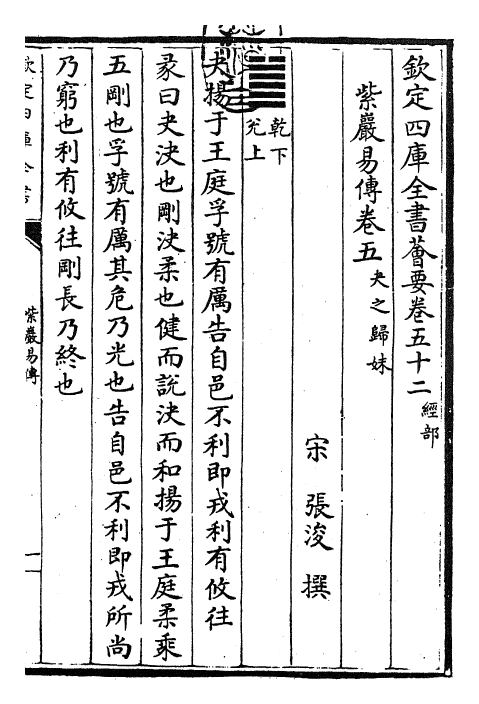 欽定四庫全書薈要卷五十二 經部
紫巖易傳卷五 夬之歸妹
宋 張浚 撰
乾下
兌上
夬揚于王庭孚號有厲告自邑不利即戎利有攸往
彖曰夬決也剛決柔也健而說決而和揚于王庭柔乘
五剛也孚號有厲其危乃光也告自邑不利即戎所尚
乃窮也利有攸往剛長乃終也
紫巖易傳
一